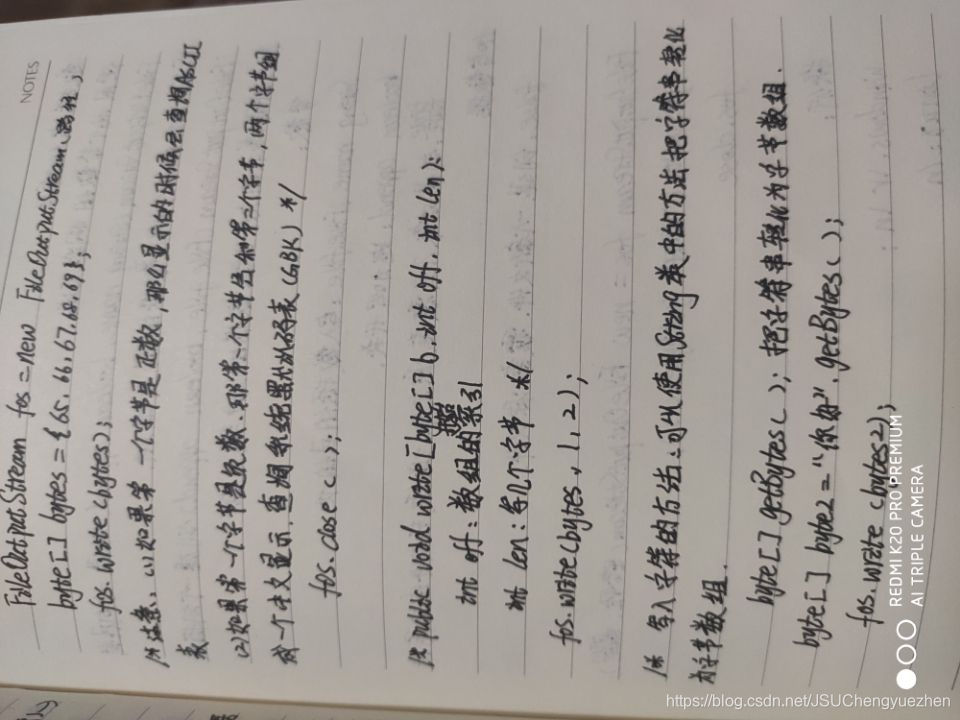 NOTES
FileOutputStream fos = new FileOutputStream(路径);
byte[] bytes = {65.66.67.68.69};
fos.write(bytes);
/* 注意：(1)如果第一个字节是正数，那么显示的时候会查询ASCII
表
(2)如果第一个字节是负数、那第一个字节会和第二个字节，两个字节组
成一个中文显示，查询系统默认码表(GBK) */
fos.close();
/* public void write[byte[] b. int off. int len):
int off: 数组的 索引
int len: 写几个字节 */
fos.write(bytes, 1, 2);
/* 写入字符的方法：可以使用String类中的方法把字符串转化
为字节数组.
byte[] getBytes(); 把字符串转化为字节数组.
byte[] byte2 = "你好".getBytes();
fos.write(bytes2);
REDMI K20 PRO PREMIUM
AI TRIPLE CAMERA
https://blog.csdn.net/JSUChengyuezhen